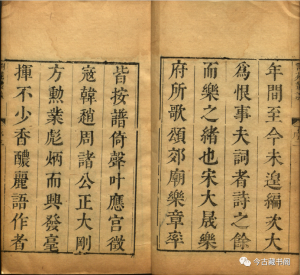 年間至今未遑編次大
為恨事夫詞者詩之餘
而樂之緒也宋大晟樂
府所歌頌郊廟樂章率
皆按譜倚聲叶應宫徵
寇韓趙周諸公正大剛
方勲業彪炳而興發毫
揮不少香醲麗語作者
今古藏书阁